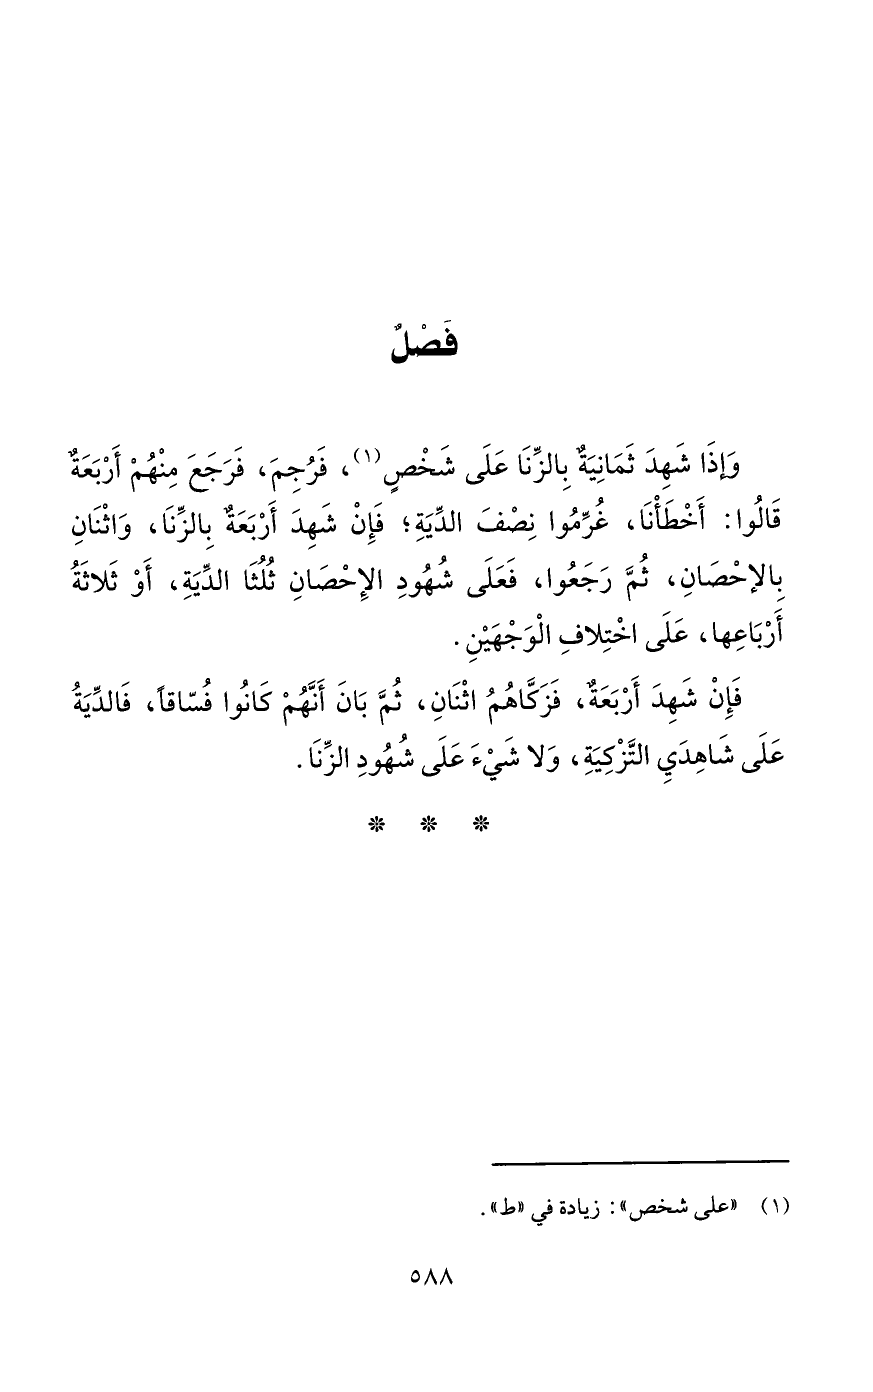 فَصْلٌ
وَإِذَا شَهِدَ ثَمَانِيَةٌ بِالزِّنَا عَلَى شَخْصٍ(١)، فَرُجِمَ، فَرَجَعَ مِنْهُمْ أَرْبَعَةٌ
قَالُوا: أَخْطَأْنَا، غُرِّمُوا نِصْفَ الدِّيَةِ؛ فَإِنْ شَهِدَ أَرْبَعَةٌ بِالزِّنَا، وَاثْنَانِ
بِالإحْصَانِ، ثُمَّ رَجَعُوا، فَعَلَى شُهُودِ الإِحْصَانِ ثُلُثَا الدِّيَةِ، أَوْ ثَلاثَةُ
أَرْبَاعِها، عَلَى اخْتِلافِ الْوَجْهَيْنِ.
فَإِنْ شَهِدَ أَرْبَعَةٌ، فَزَكَّاهُمُ اثْنَانِ، ثُمَّ بَانَ أَنَّهُمْ كَانُوا فُسّاقاً، فَالدِّيَةُ
عَلَى شَاهِدَيِ التَّزْكِيَةِ، وَلا شَيْءَ عَلَى شُهُودِ الزِّنَا.
* * *
(١) «على شخص»: زيادة في «ط».
٥٨٨